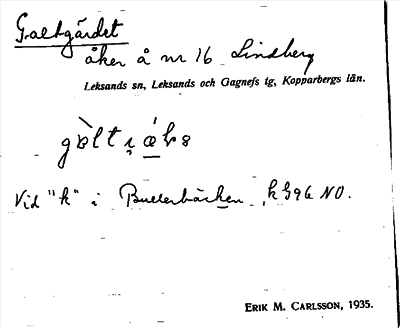 Galtgärdet
åker å nr 16 Lindberg
Leksands sn, Leksands och Gagnefs tg, Kopparbergs län.
Vid "k" i Bullerbäcken, k 996 NO.
ERIK M. CARLSSON, 1935.